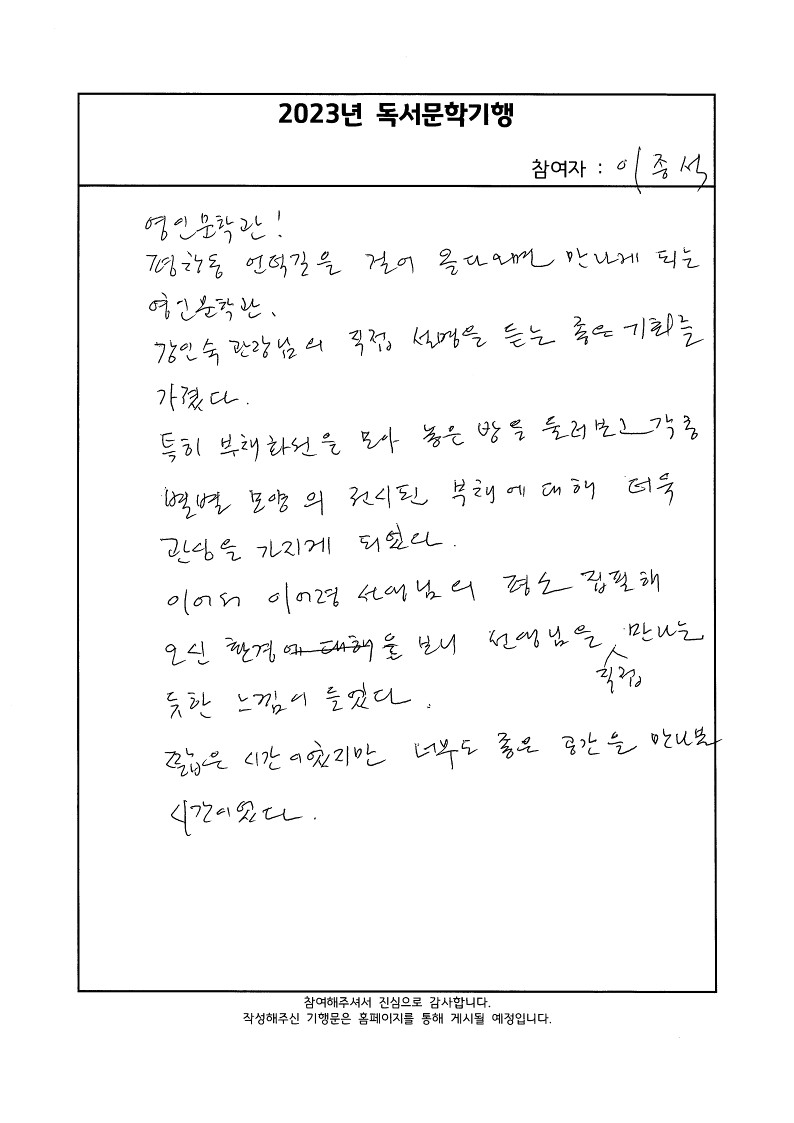 2023년 독서문학기행
참여자 : 이종석
영인문학관!
평창동 언덕길을 걸어 올라오면 만나게 되는
영인문학관.
강인숙 관장님의 직접 설명을 듣는 좋은 기회를
가졌다.
특히 부채화선을 모아 놓은 방을 둘러보고 각종
별별 모양의 전시된 부채에 대해 더욱
관심을 가지게 되었다.
이어서 이어령 선생님의 평소 집필해
오신 환경에 대해 을 보니 선생님을 직접 만나는
듯한 느낌이 들었다.
짧은 시간이었지만 너무도 좋은 공간을 만나본
시간이었다.
참여해주셔서 진심으로 감사합니다.
작성해주신 기행문은 홈페이지를 통해 게시될 예정입니다.